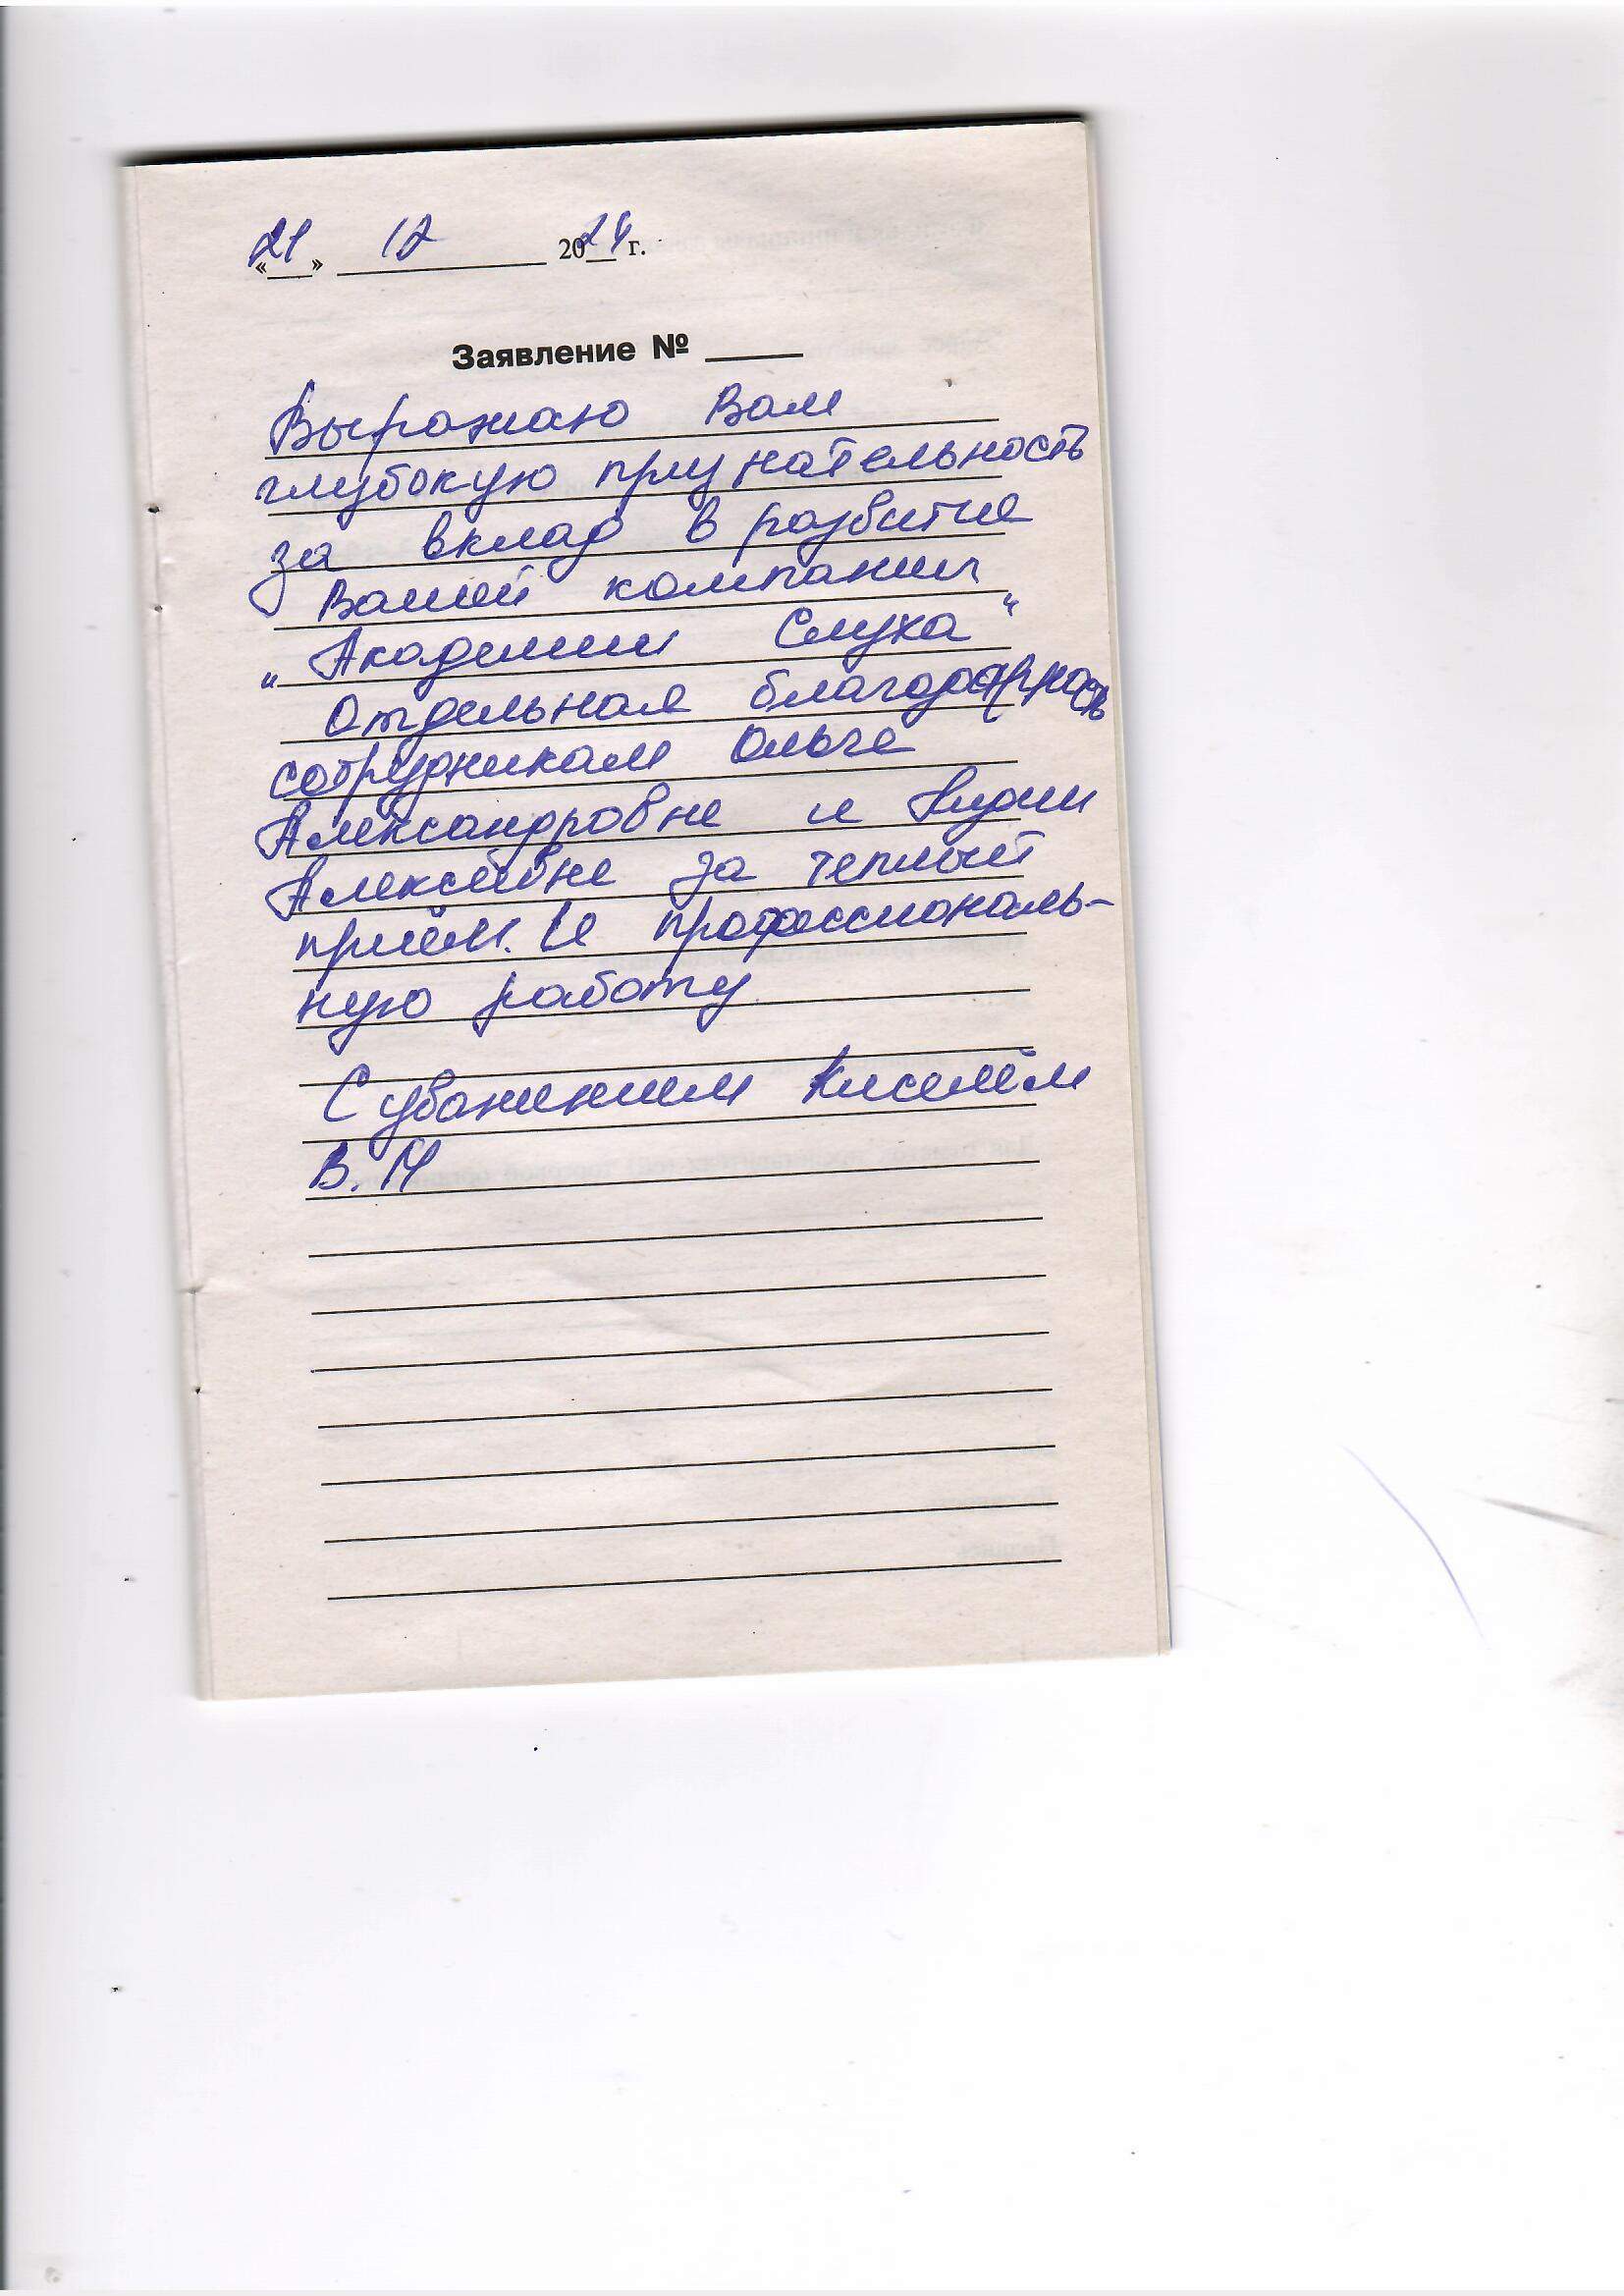 «21» 12 2024 г.
Заявление № ____
Выражаю Вам
глубокую признательность
за вклад в развитие
Вашей компании
"Академии Слуха"
Отдельная благодарность
сотрудникам Ольге
Александровне и
Алексеевне за теплый
приём. И профессиональ-
ную работу
С уважением Киселём
В. М